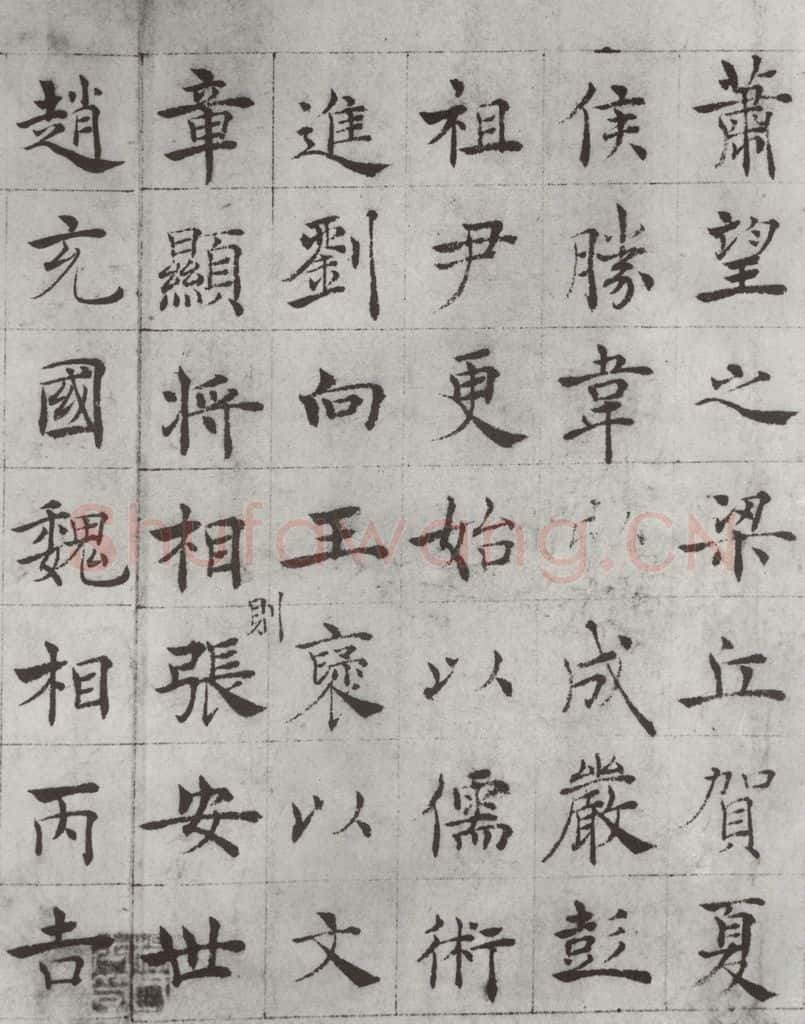 蕭望之梁丘賀夏
侯勝韋成嚴彭
祖尹更始以儒術
進劉向王褒以文
章顯將相則張安世
趙充國魏相丙吉
Shufawang.CN